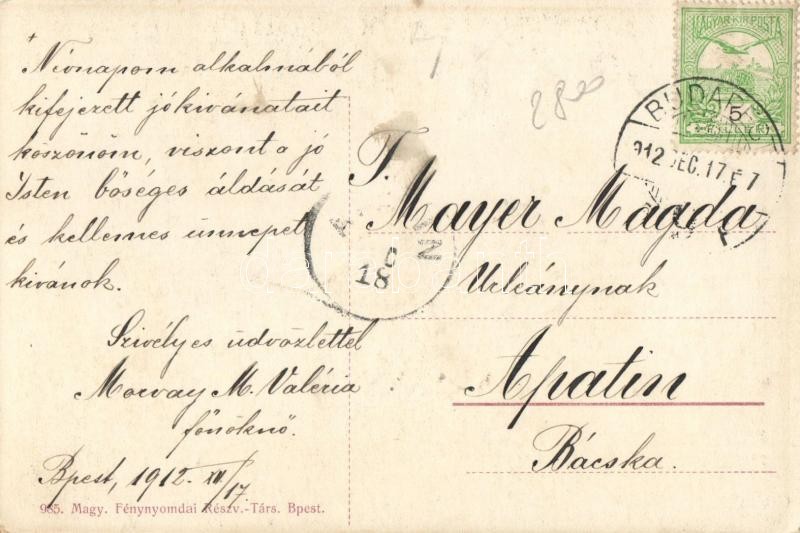 Névnapom alkalmából
kifejezett jókivánatait
köszönöm, viszont a jó
Isten bőséges áldását
és kellemes ünnepet
kivánok.
Szivélyes üdvözlettel
Morvay M. Valéria
főnöknő.
Bpest, 1912. XII/17
985. Magy. Fénynyomdai Részv.-Társ. Bpest.
MAGYAR KIR. POSTA
5
BUDAPEST
912 DEC. 17.
18
T.
Mayer Magda
Urleánynak
Apatin
Bácska.